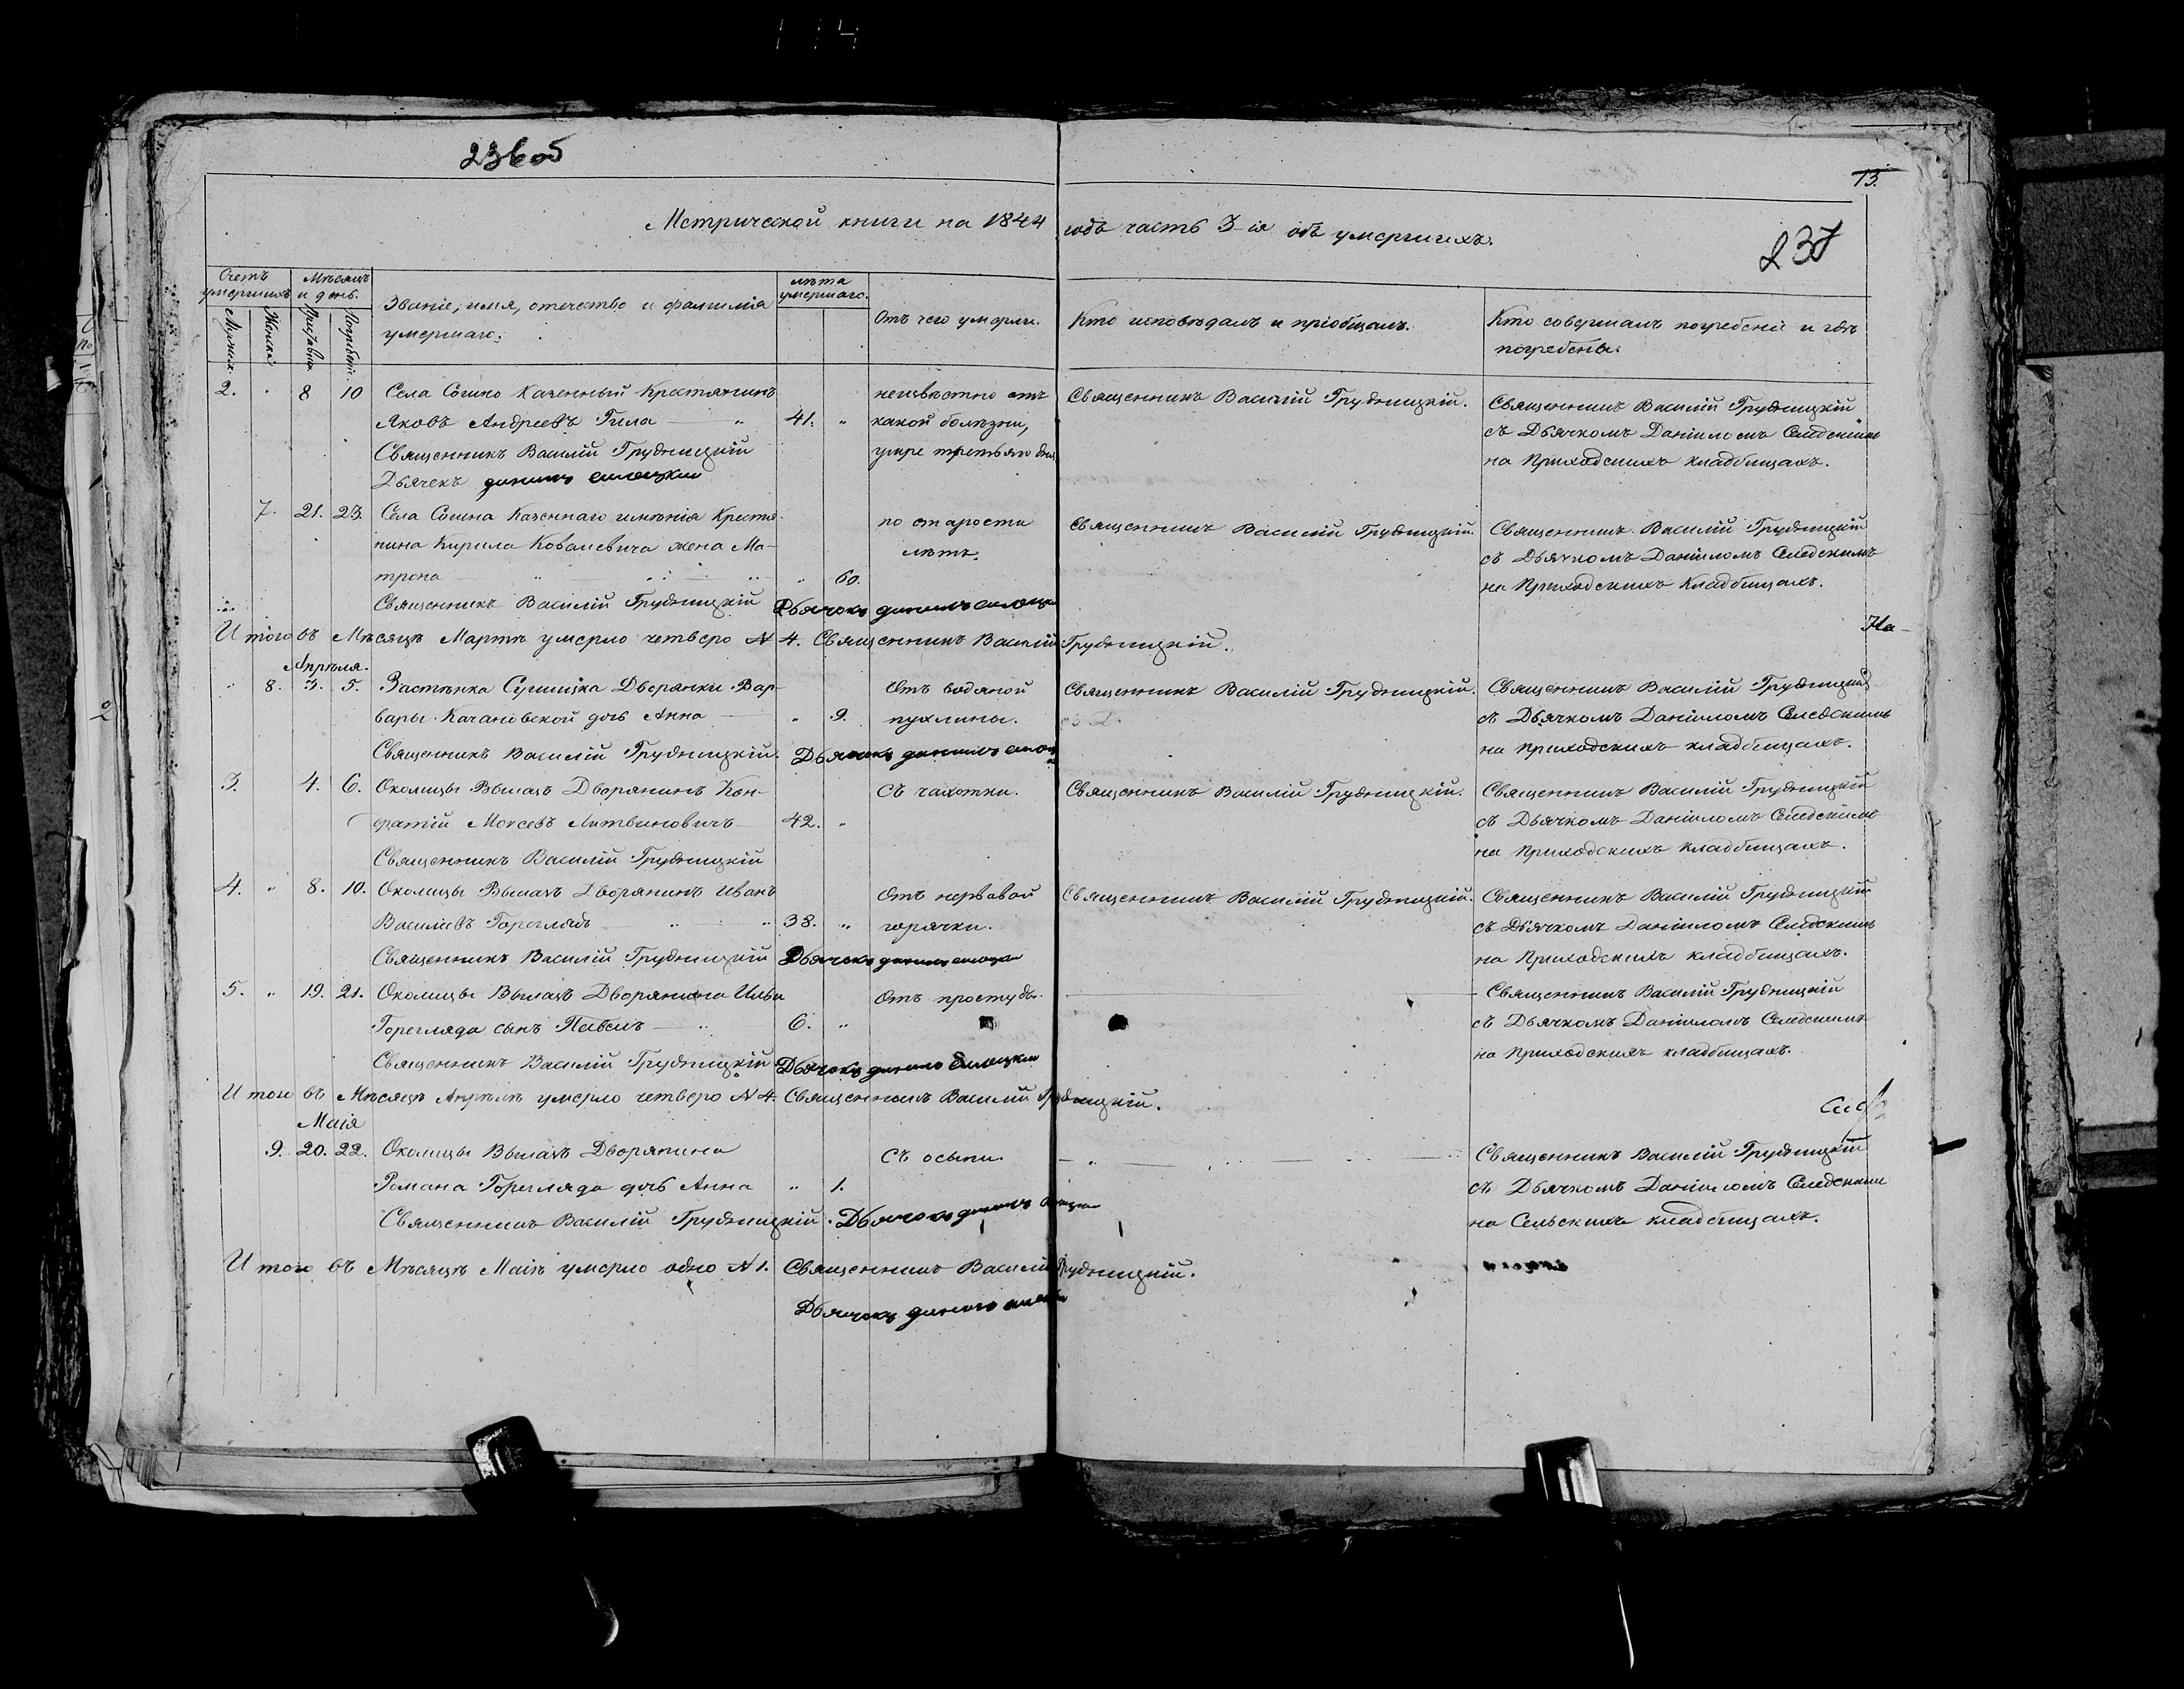 236об
13.
Метрической книги на 1844 годъ часть 3-ія объ умершихъ.
237
Счетъ умершихъ
Мѣсяцъ и день.
Званіе, имя, отечество и фамилія умершаго.
лѣта умершаго.
Отъ чего умерли.
Кто исповѣдалъ и пріобщалъ.
Кто совершалъ погребеніе и гдѣ погребены.
Мужеска
Женска
2. " 8 10 Села Казенный Крестянинъ неизвѣстно отъ Священникъ Василій Грудницкій. Священникъ Василій Грудницкій
Яковъ Андреевъ Гила " 41. " какой болѣзни, съ Дьячкомъ Даніиломъ
Священникъ Василій Грудницкій умре третьяго дня на Приходскихъ кладбищахъ.
Дьячекъ
7. 21. 23. Села Казеннаго имѣнія Крестя- по старости Священникъ Василій Грудницкій. Священникъ Василій Грудницкій
нина Кирила Ковалевича жена Ма- лѣтъ. съ Дьячкомъ Даніиломъ
трона " " 60. на Приходскихъ Кладбищахъ.
Священникъ Василій Грудницкій Дьячокъ
Итого въ Мѣсяцѣ Мартѣ умерло четверо № 4. Священникъ Василій Грудницкій.
На-
Апрѣля.
" 8. 3. 5. Застѣнка Дворянки Вар- Отъ водяной Священникъ Василій Грудницкій. Священникъ Василій Грудницкій
вары Качановской дочь Анна " 9. пухлины. съ Дьячкомъ Даніиломъ
Священникъ Василій Грудницкій. Дьячокъ на приходскихъ кладбищахъ.
3. 4. 6. Околицы Дворянинъ Кон- Съ чахотки. Священникъ Василій Грудницкій. Священникъ Василій Грудницкій
дратій Литвиновичъ 42. " съ Дьячкомъ Даніиломъ
Священникъ Василій Грудницкій на Приходскихъ кладбищахъ.
4. " 8. 10. Околицы Дворянинъ Иванъ Отъ нервавой Священникъ Василій Грудницкій. Священникъ Василій Грудницкій
Василіевъ Горегляд " " 38. " горячки. съ Дьячкомъ Даніиломъ
Священникъ Василій Грудницкій Дьячокъ на Приходскихъ кладбищахъ.
5. " 19. 21. Околицы Дворянина Ильи Отъ простуды. Священникъ Василій Грудницкій
Горегляда сынъ Павелъ " 6. " съ Дьячкомъ Даніиломъ
Священникъ Василій Грудницкій Дьячокъ на приходскихъ кладбищахъ.
Итого въ Мѣсяцѣ Апрѣлѣ умерло четверо № 4. Священникъ Василій Грудницкій.
Маія
9. 20. 22. Околицы Дворянина Съ осыпи. Священникъ Василій Грудницкій
Романа Горегляда дочь Анна " 1. съ Дьячкомъ Даніиломъ
Священникъ Василій Грудницкій. Дьячокъ на Сельскихъ кладбищахъ.
Итого въ Мѣсяцѣ Маіѣ умерло одно № 1. Священникъ Василій Грудницкій.
Дьячокъ